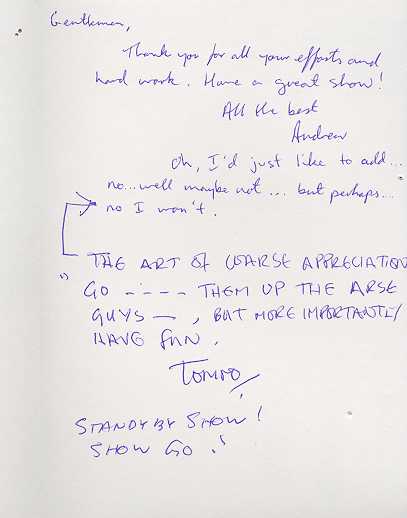 Gentlemen,
Thank you for all your efforts and
hard work. Have a great show!
All the best
Andrew
Oh, I'd just like to add...
no...well maybe not... but perhaps...
no I won't.
THE ART OF COARSE APPRECIATION
GO ----- THEM UP THE ARSE
GUYS —, BUT MORE IMPORTANTLY
HAVE FUN.
STANDBY SHOW!
SHOW GO!